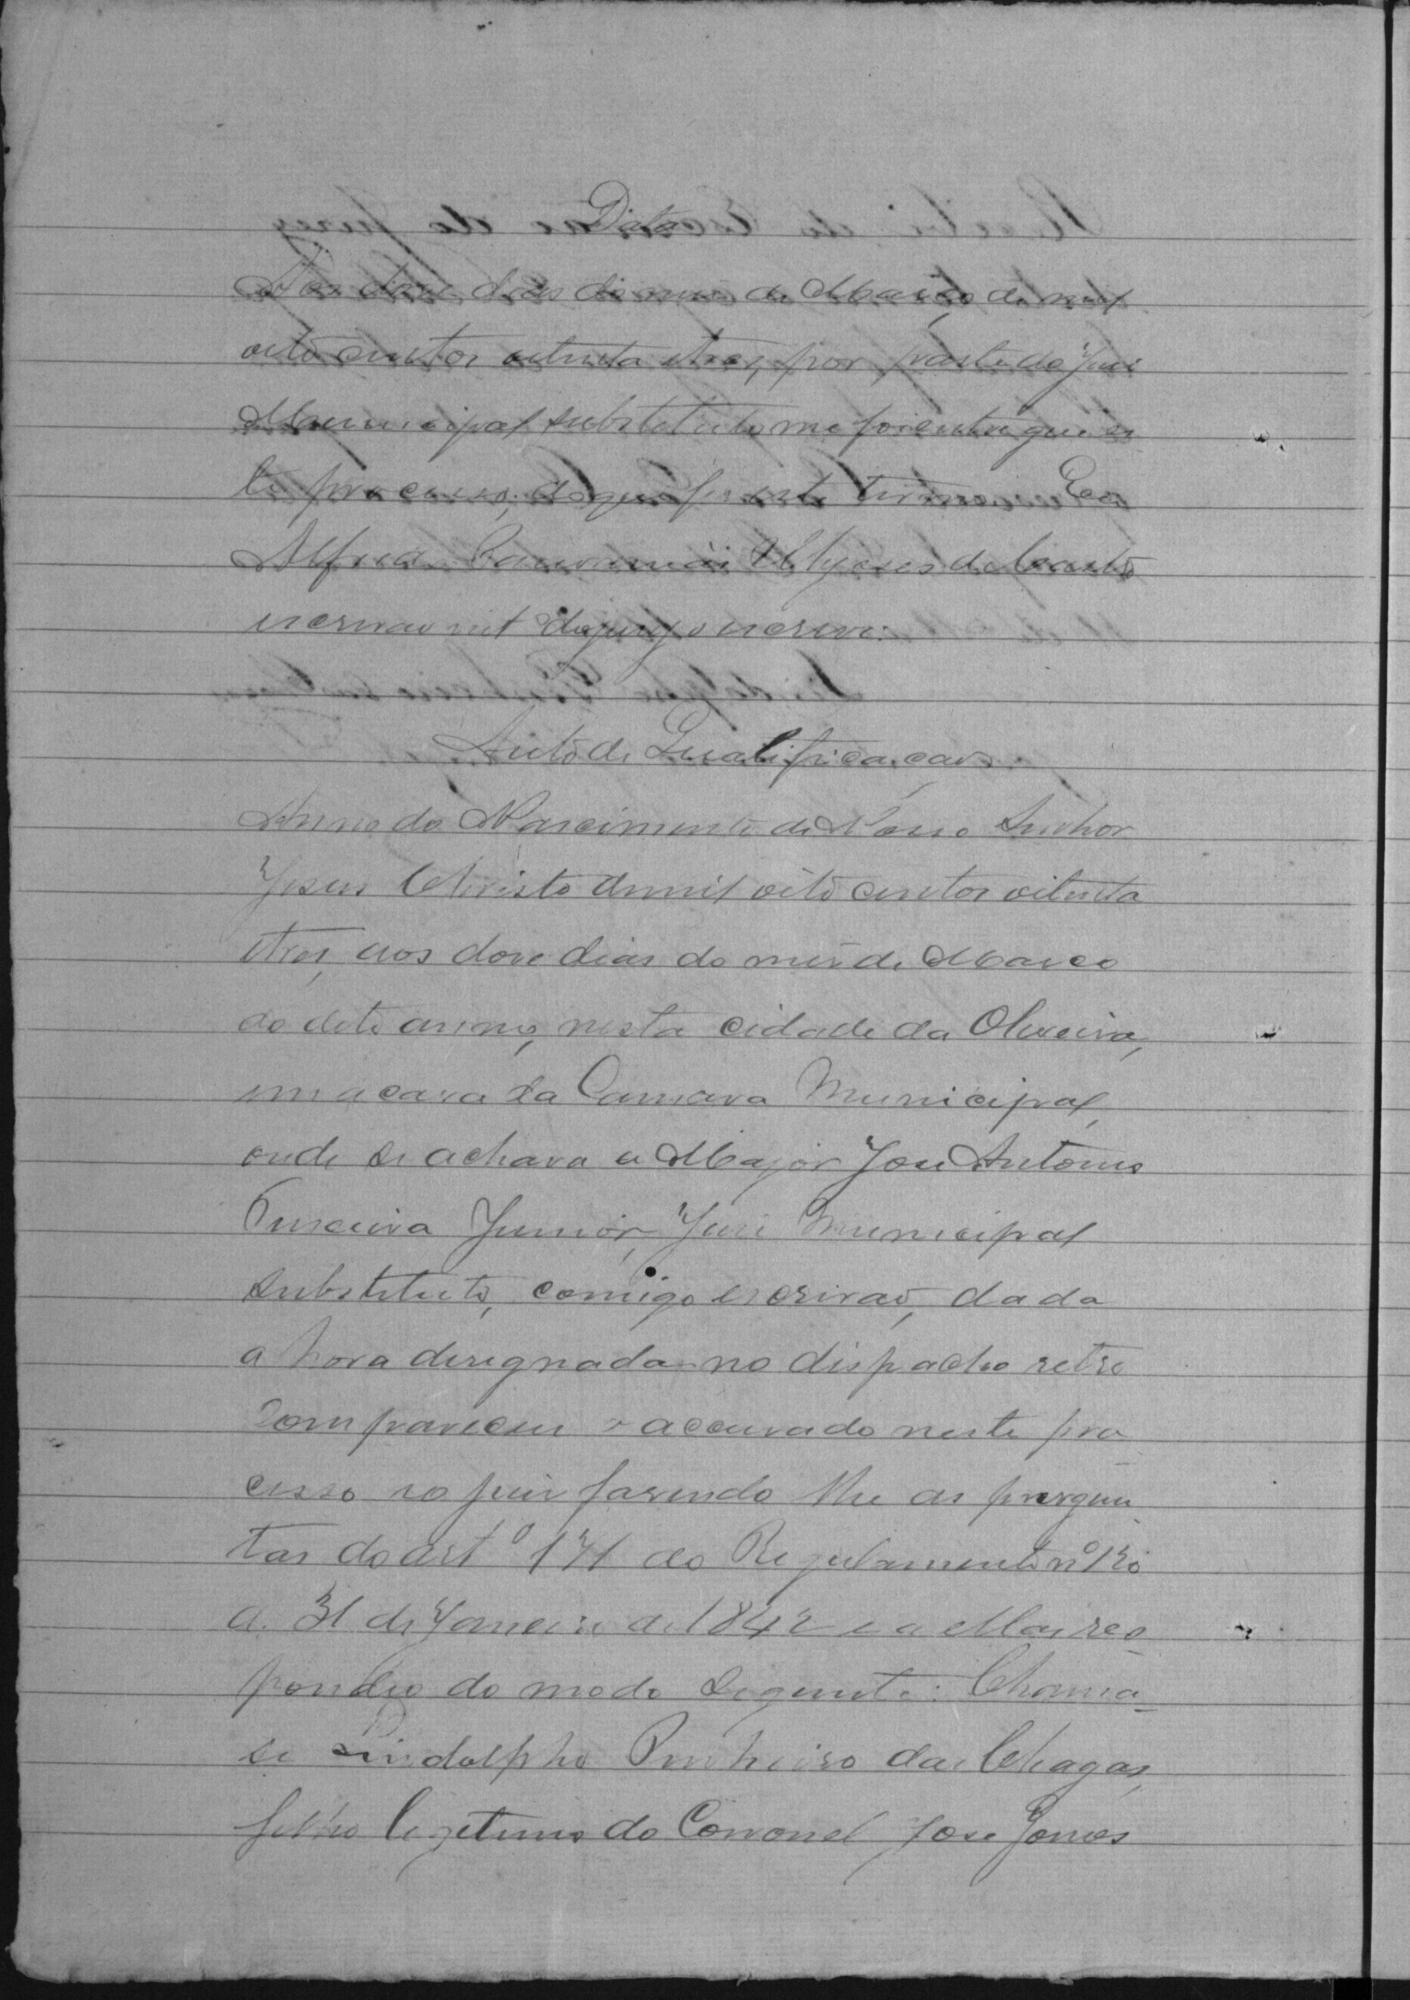 Data
Aos doze dias do mes de Março de mil
oito centos oitenta e tres, por parte do Juiz
Municipal substituto me foi entregue es
te processo, do que fiz este termo Eu
Alfredo Ulysses de Castro
escrivão int do jury o escrevi.
Auto de Qualificação
Anno do Nascimento de Nosso Senhor
Jesus Christo de mil oito centos oitenta
e tres, aos doze dias do mez de Março
do dito anno, nesta cidade da Oliveira,
em a casa da Camara Municipal,
onde se achava o Major José Antonio
Junior, Juiz Municipal
substituto, comigo escrivão, dada
a hora designada no dispacho retro
compareceu o accusado neste pro
cesso e o juiz fazendo lhe as pergun
tas do artº 171 do Regulamento nº 120
de 31 de Janeiro de 1842 e a ellas res
pondeo do modo seguinte: Chama-
se Lindolpho Pinheiro das Chagas,
filho legitimo do Coronel José Gomes